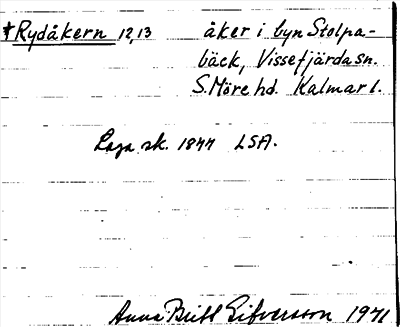 †Rydåkern 12,13 åker i byn Stolpa-
bäck, Vissefjärda sn.
S. Möre hd. Kalmar l.
Laga sk. 1844 LSA.
Anna Britt Sifversson 1971